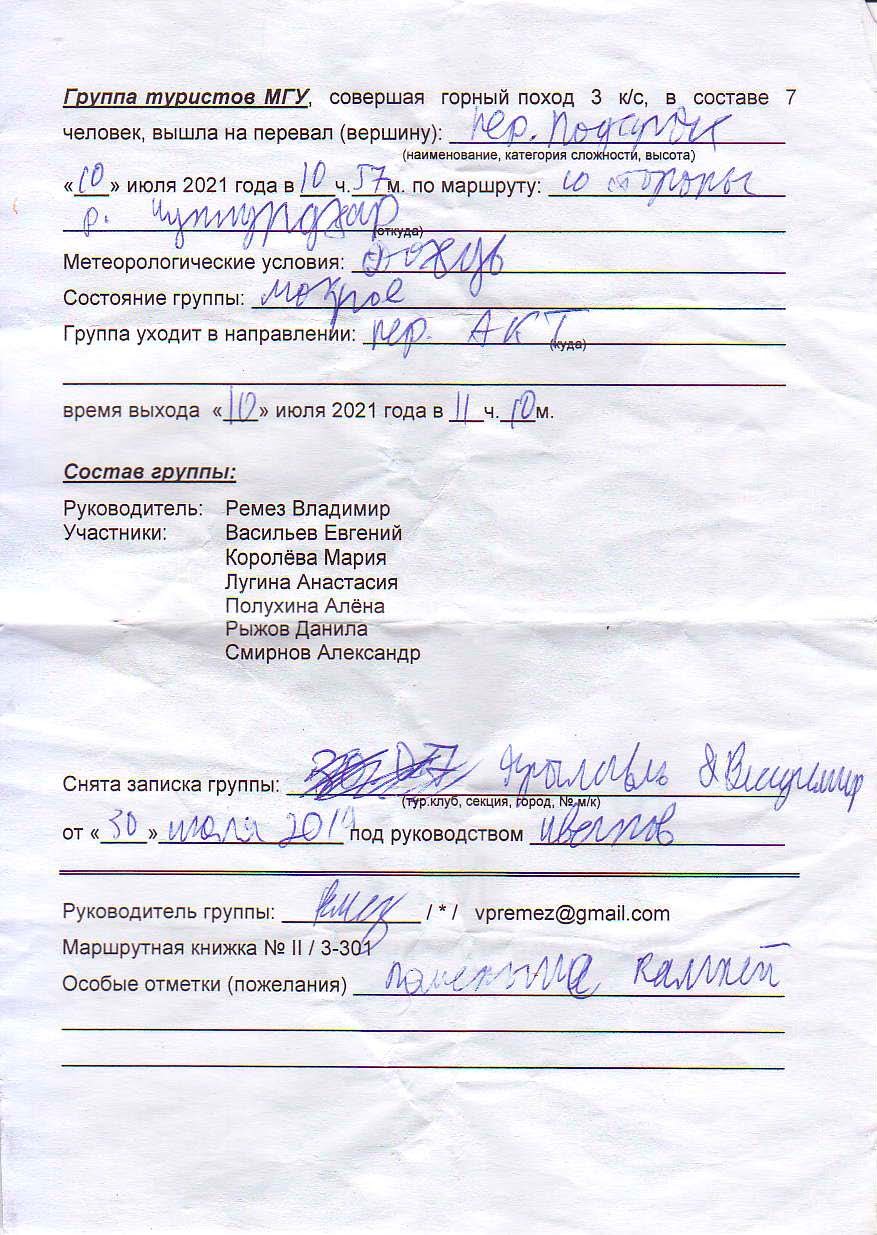 Группа туристов МГУ, совершая горный поход 3 к/с, в составе 7
человек, вышла на перевал (вершину): пер. Подарок
(наименование, категория сложности, высота)
«10» июля 2021 года в 10 ч. 57 м. по маршруту: со стороны
р.
(откуда)
Метеорологические условия: дождь
Состояние группы: мокрое
Группа уходит в направлении: пер. АКТ
(куда)
время выхода «10» июля 2021 года в 11 ч. 10 м.
Состав группы:
Руководитель: Ремез Владимир
Участники: Васильев Евгений
Королёва Мария
Лугина Анастасия
Полухина Алёна
Рыжов Данила
Смирнов Александр
Снята записка группы:
(тур.клуб, секция, город, № м/к)
от «30» июля 2019 под руководством
Руководитель группы: Ремез / * / vpremez@gmail.com
Маршрутная книжка № II / 3-301
Особые отметки (пожелания) камней